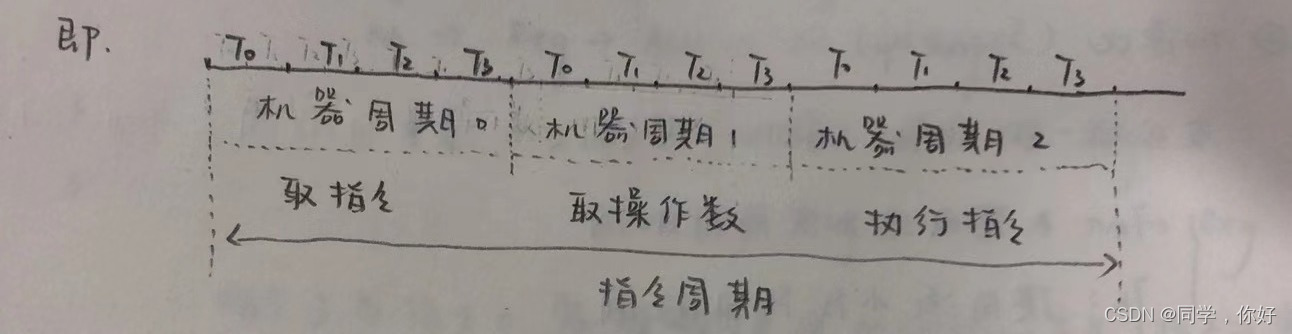 即.
T0 T1 T2 T3 T0 T1 T2 T3 T0 T1 T2 T3
机器周期0 机器周期1 机器周期2
取指令 取操作数 执行指令
指令周期
CSDN @同学，你好